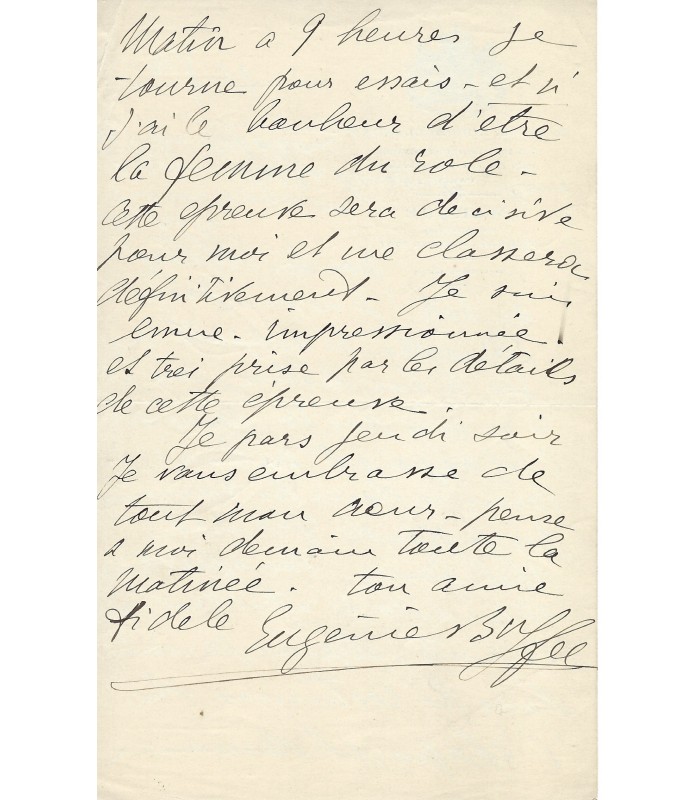 Matin a 9 heures je
tourne pour essais - et si
j'ai le bonheur d'être
la femme du role -
cette epreuve sera decisive
pour moi et me classera
définitivement - Je suis
emue - impressionnée
et très prise par les détails
de cette épreuve.
Je pars jeudi soir
Je vous embrasse de
tout mon cœur - pense
a moi demain toute la
matinée. ton amie
fidele Eugénie Buffet